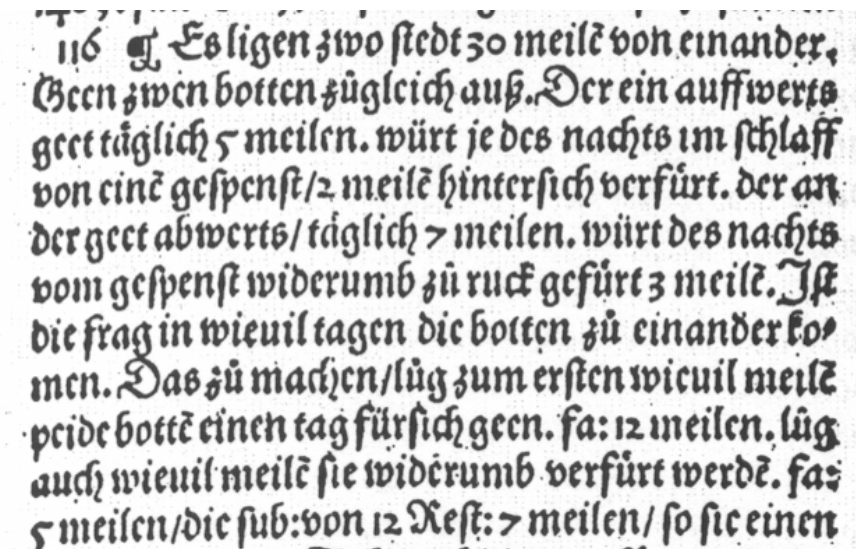 116 ¶ Es ligen zwo stedt 30 meilē von einander.
Geen zwen botten zůgleich auß. Der ein auffwerts
geet täglich 5 meilen. würt je des nachts im schlaff
von einē gespenst/2 meilē hintersich verfürt. der an
der geet abwerts/ täglich 7 meilen. würt des nachts
vom gespenst widerumb zů ruck gefürt 3 meilē. Ist
die frag in wieuil tagen die botten zů einander ko⸗
men. Das zů machen/lůg zum ersten wieuil meilē
peide bottē einen tag fürsich geen. fa: 12 meilen. lůg
auch wieuil meilē sie widerumb verfürt werdē. fa:
5 meilen/die sub: von 12 Rest: 7 meilen/ so sie einen